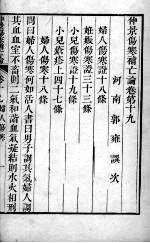 仲景傷寒補亡論卷第十九
河南郭雍譔次
婦人傷寒證十八條
妊娠傷寒證三十三條
小兒傷寒證十條
小兒瘡疹上四十七條
婦人傷寒十八條
問曰婦人傷寒何如活人書曰男子調其氣婦人調
其血血室不蓄則二氣和諧血氣凝結則水火相刑